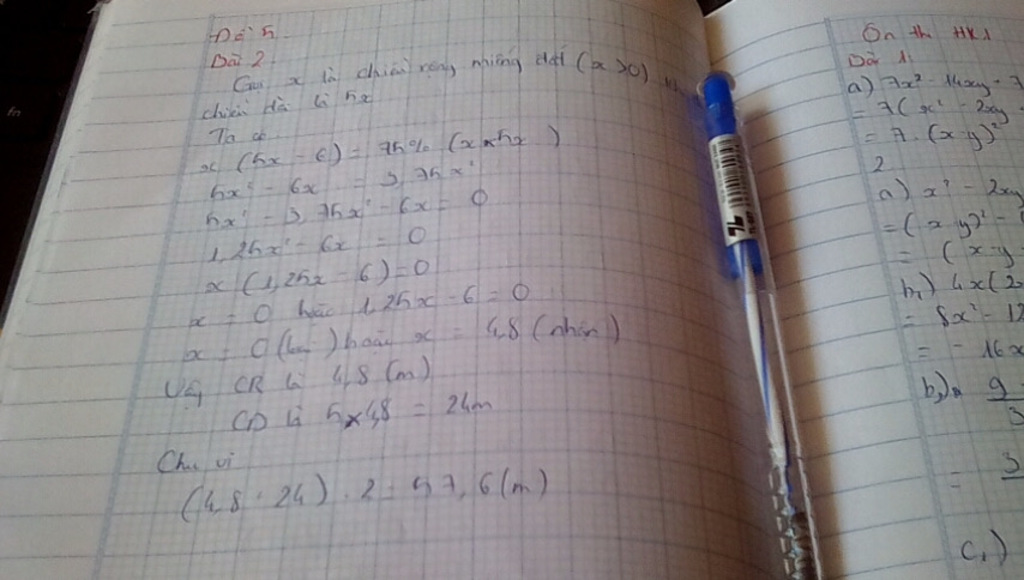 Đề 5
Bài 2
Gọi x là chiều rộng miếng đất (x > 0)
chiều dài là 5x
Ta có
x (5x - 6) = 75% (x x 5x )
5x² - 6x = 3,75x²
5x² - 3,75x² - 6x = 0
1,25x² - 6x = 0
x (1,25x - 6) = 0
x = 0 hoặc 1,25x - 6 = 0
x = 0 (loại) hoặc x = 4,8 (nhận)
Vậy CR là 4,8 (m)
CD là 5x4,8 = 24m
Chu vi
(4,8 + 24) . 2 = 57,6 (m)
Ôn thi HK1
Bài 1
a) 7x² - 14xy + 7
= 7( x² - 2xy
= 7. (x-y)²
2
a) x² - 2xy
= ( x-y)² -
= ( x-y
b,) 4x(2
= 8x² - 12
= - 16x
b,) 9
3
= 3
c,)